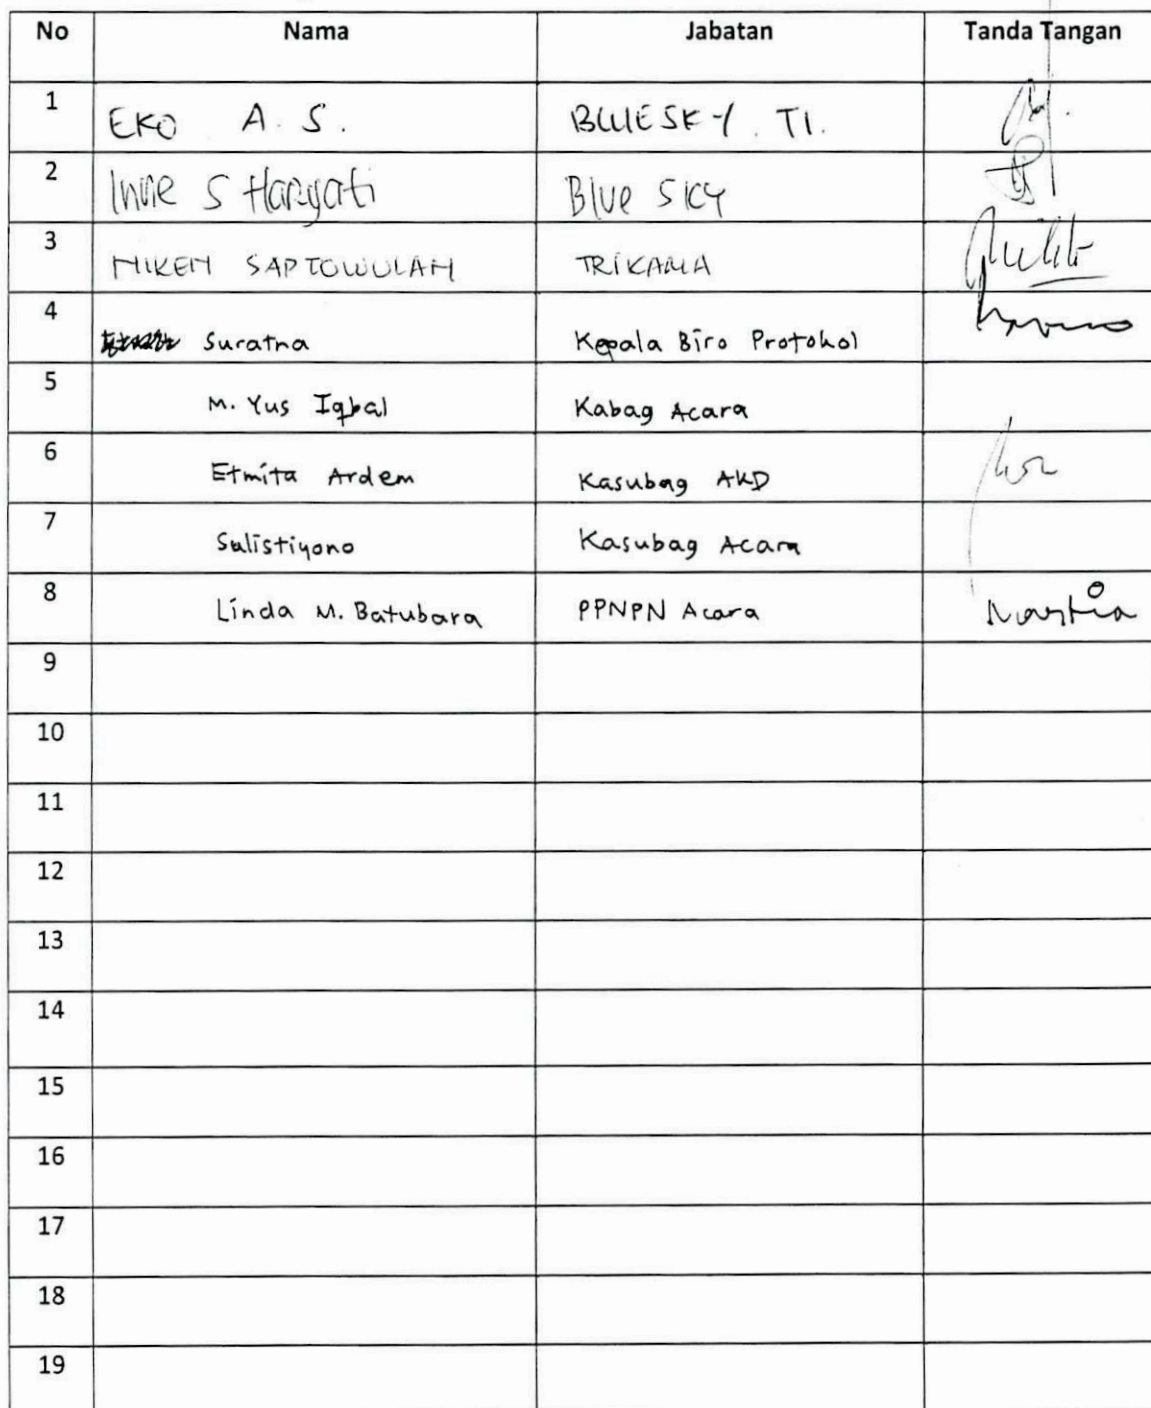 No Nama Jabatan Tanda Tangan
1 EKO A. S. BLUESKY. TI.
2 Inne S Haryati Blue Sky
3 NIKEN SAPTOWULAN TRIKAMA
4 Suratna Kepala Biro Protokol
5 M. Yus Iqbal Kabag Acara
6 Etmita Ardem Kasubag AKD
7 Sulistiyono Kasubag Acara
8 Linda M. Batubara PPNPN Acara
9
10
11
12
13
14
15
16
17
18
19